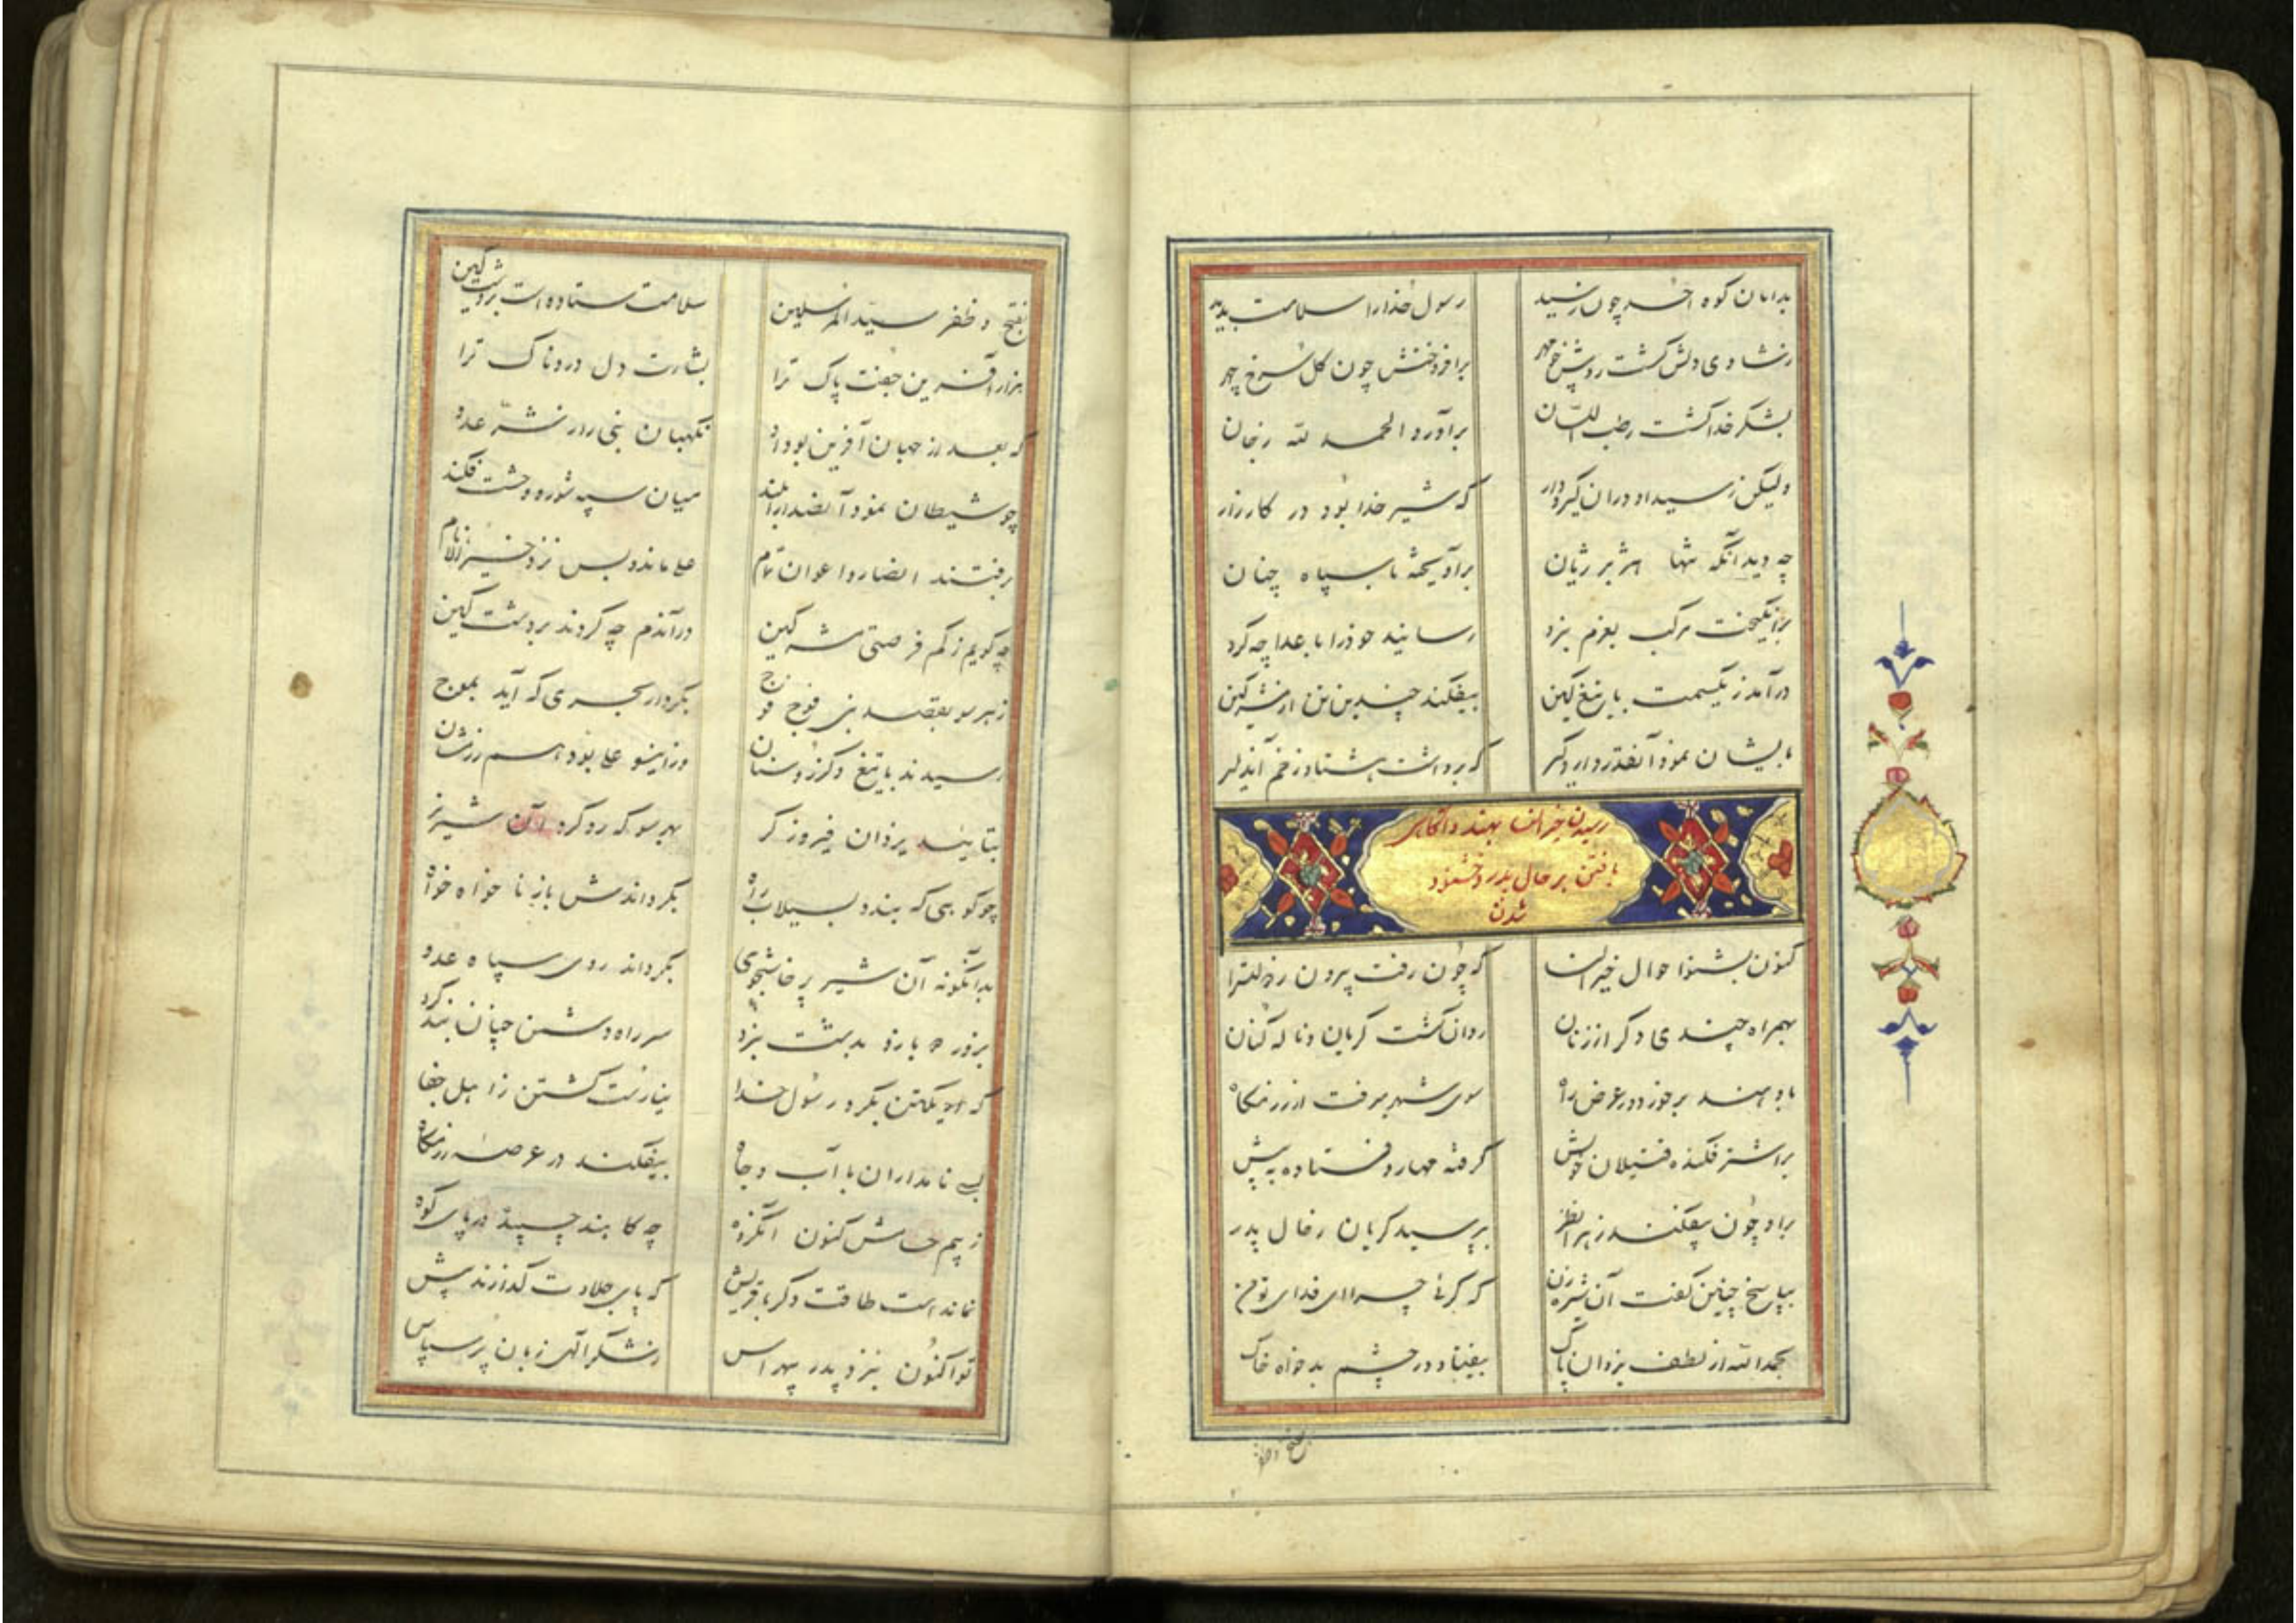 بدامان کوه احد چون رسید رسول خدا را سلامت بدید
ز شادی دلش گشت روشن چو مهر برافروختش چون گل سرخ چهر
بشکر خدا گشت رطب اللسان برآورد الحمد لله ز جان
ولیکن رسید او در ان گیرودار که شیر خدا بود در کارزار
چه دید آنکه تنها هژبر ژیان برآویخته با سپاه چنان
برانگیخت مرکب بعزم نبرد رسانید خود را باعدا چه گرد
درآمد ز یکسمت با تیغ کین بیفکند چندین تن از مشرکین
بایشان نمود آنقدر دار و گیر که برداشت هشتاد زخم آن دلیر
رسیدن خیرالنسا بهند و آگاهی
یافتن بر حال پدر و خشنود
شدن
کنون بشنو احوال خیرالنسا که چون رفت بیرون ز
بهمراه چندی دگر از زنان روان گشت گریان و ناله کنان
باو هند برخورد در عرض راه سوی شهر میرفت از رزمگاه
بر اشتر فکنده قتیلان خویش گرفته مهار و فتاده به پیش
براو چون بیفکند زهرا نظر بپرسید گریان ز حال پدر
بپاسخ چنین گفت آن شیرزن که گریی چرا ای فدای تو من
بحمدالله از لطف یزدان پاک بیفتاد در چشم بدخواه خاک
بفتح و ظفر
بفتح و ظفر سید المرسلین سلامت ستاده است بردشت کین
هزار آفرین جفت پاک ترا بشارت دل دردناک ترا
که بعد از جهان آفرین بود او نگهبان نبی را ز شر عدو
چو شیطان نمود آن صدا را بلند میان سپه شور و وحشت فکند
برفتند انصار و اعوان تمام علی ماند و بس نزد خیرالانام
چه گویم ز کم فرصتی مشرکین درآندم چه کردند بردشت کین
ز هر سو بقصد نبی فوج فوج بکردار بحری که آید بموج
رسیدند با تیغ و گرز و سنان وزاینسو علی بود هم رزمشان
بتایید یزدان فیروزگر بهر سو که رو کرد آن شیر نر
چو کوهی که بندد بسیلاب راه بگرداندش باز ناخواه خواه
بدآنگونه آن شیر پرخاشجوی بگرداند روی سپاه عدو
بزور دو بازو بدشت نبرد سر راه دشمن چنان بند کرد
که یکتن بگرد رسول خدا نیارست گشتن ز اهل جفا
بسی نامداران با آب و جاه بیفکند در عرصه رزمگاه
ز بیم حسامش کنون آنگروه چه کاه بند چسپیده در پای کوه
نمانده است طاقت دگر با قریش که پای جلادت گذارند پیش
تو اکنون بنزد پدر بیهراس ز شکر الهی زبان پر سپاس